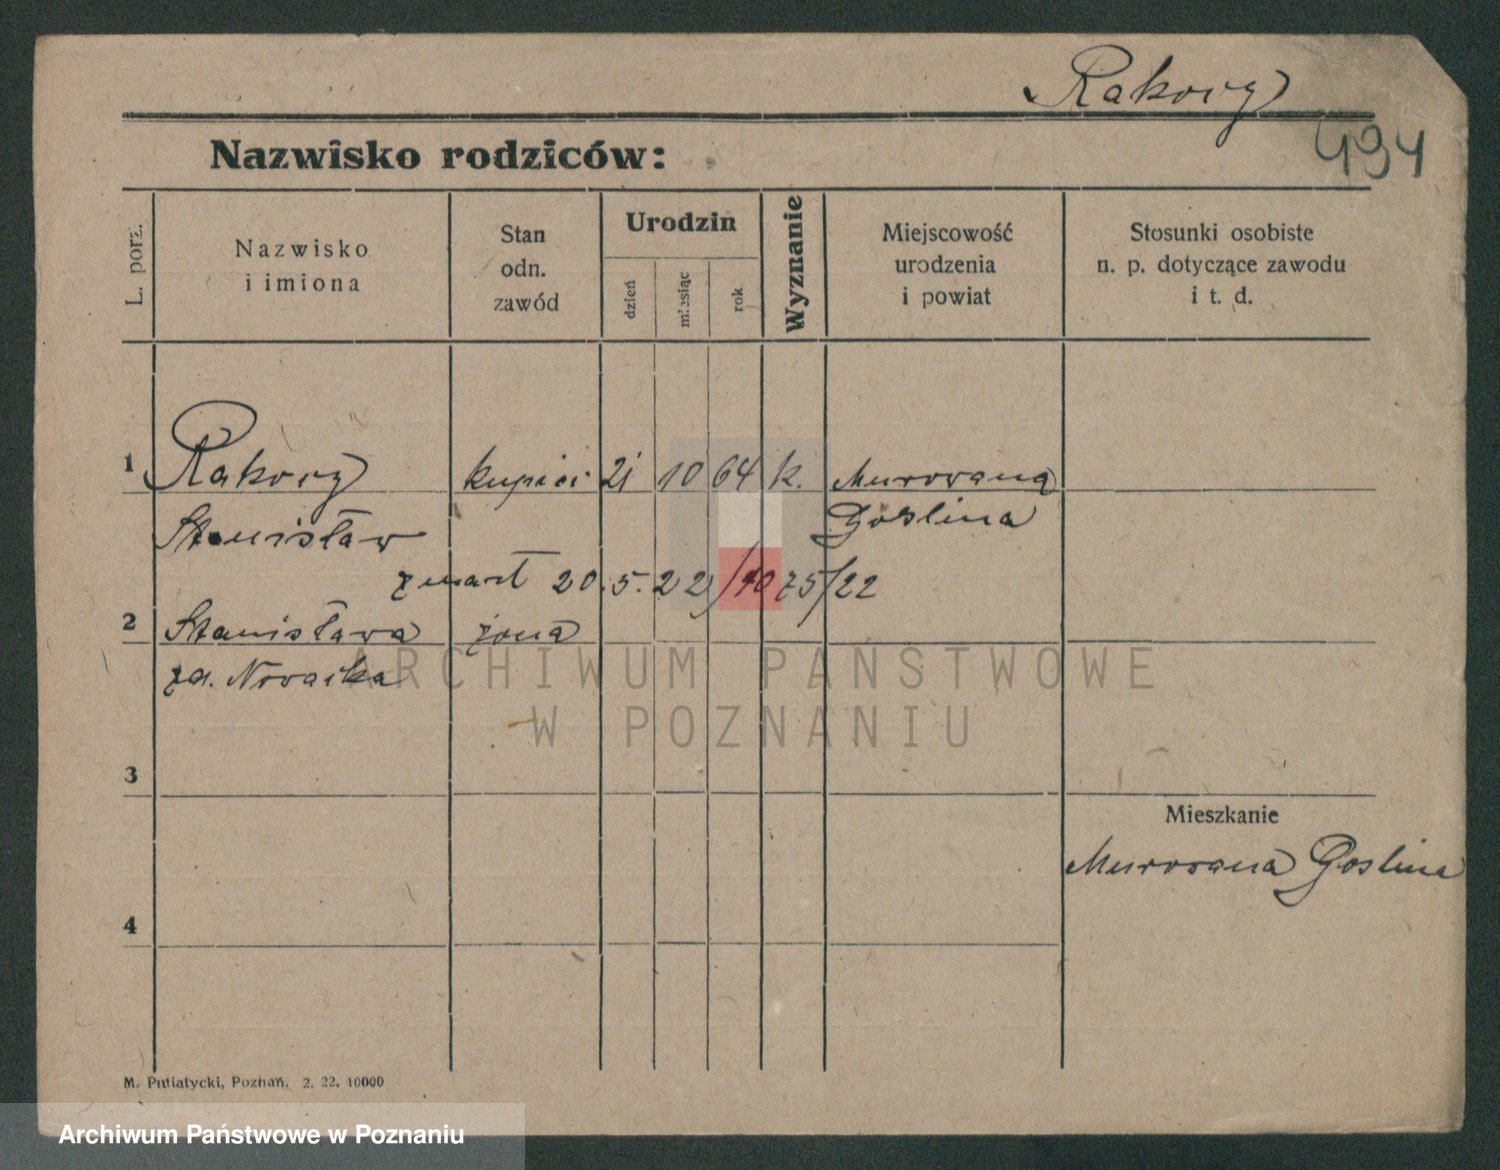 Rakowy
494
Nazwisko rodziców:
L. porz.
Nazwisko
i imiona
Stan
odn.
zawód
Urodzin
dzień
miesiąc
rok
Wyznanie
Miejscowość
urodzenia
i powiat
Stosunki osobiste
n. p. dotyczące zawodu
i t. d.
1 Rakowy kupiec 21 10 64 k. Murowana
Stanisław Goślina
zmarł 20.5.22 /1075/22
2 Stanisława żona
zd. Nowacka
ARCHIWUM PAŃSTWOWE
W POZNANIU
3
Mieszkanie
Murowana Goslina
4
M. Putiatycki, Poznań. 2. 22. 10000
Archiwum Państwowe w Poznaniu